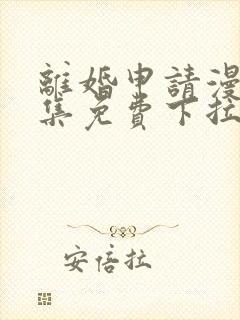 離婚申請漫
集免費下拉
安倍拉